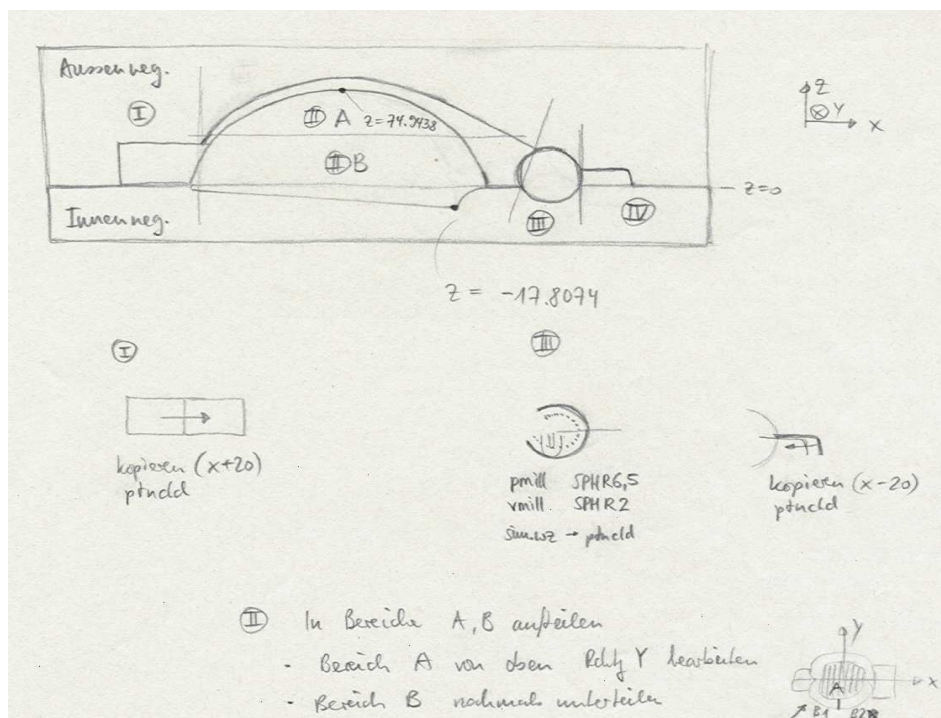 Aussenneg.
I
II A
z=74.9438
II B
Innenneg.
III
IV
z
Y
x
z=0
z = -17.8074
I
III
kopieren (x+20)
ptncld
pmill SPHR6,5
vmill SPHR2
sim.wz → ptncld
kopieren (x-20)
ptncld
II In Bereiche A, B aufteilen
- Bereich A von oben Rchtg Y bearbeiten
- Bereich B nochmals unterteilen
Y
x
A
B1 B2